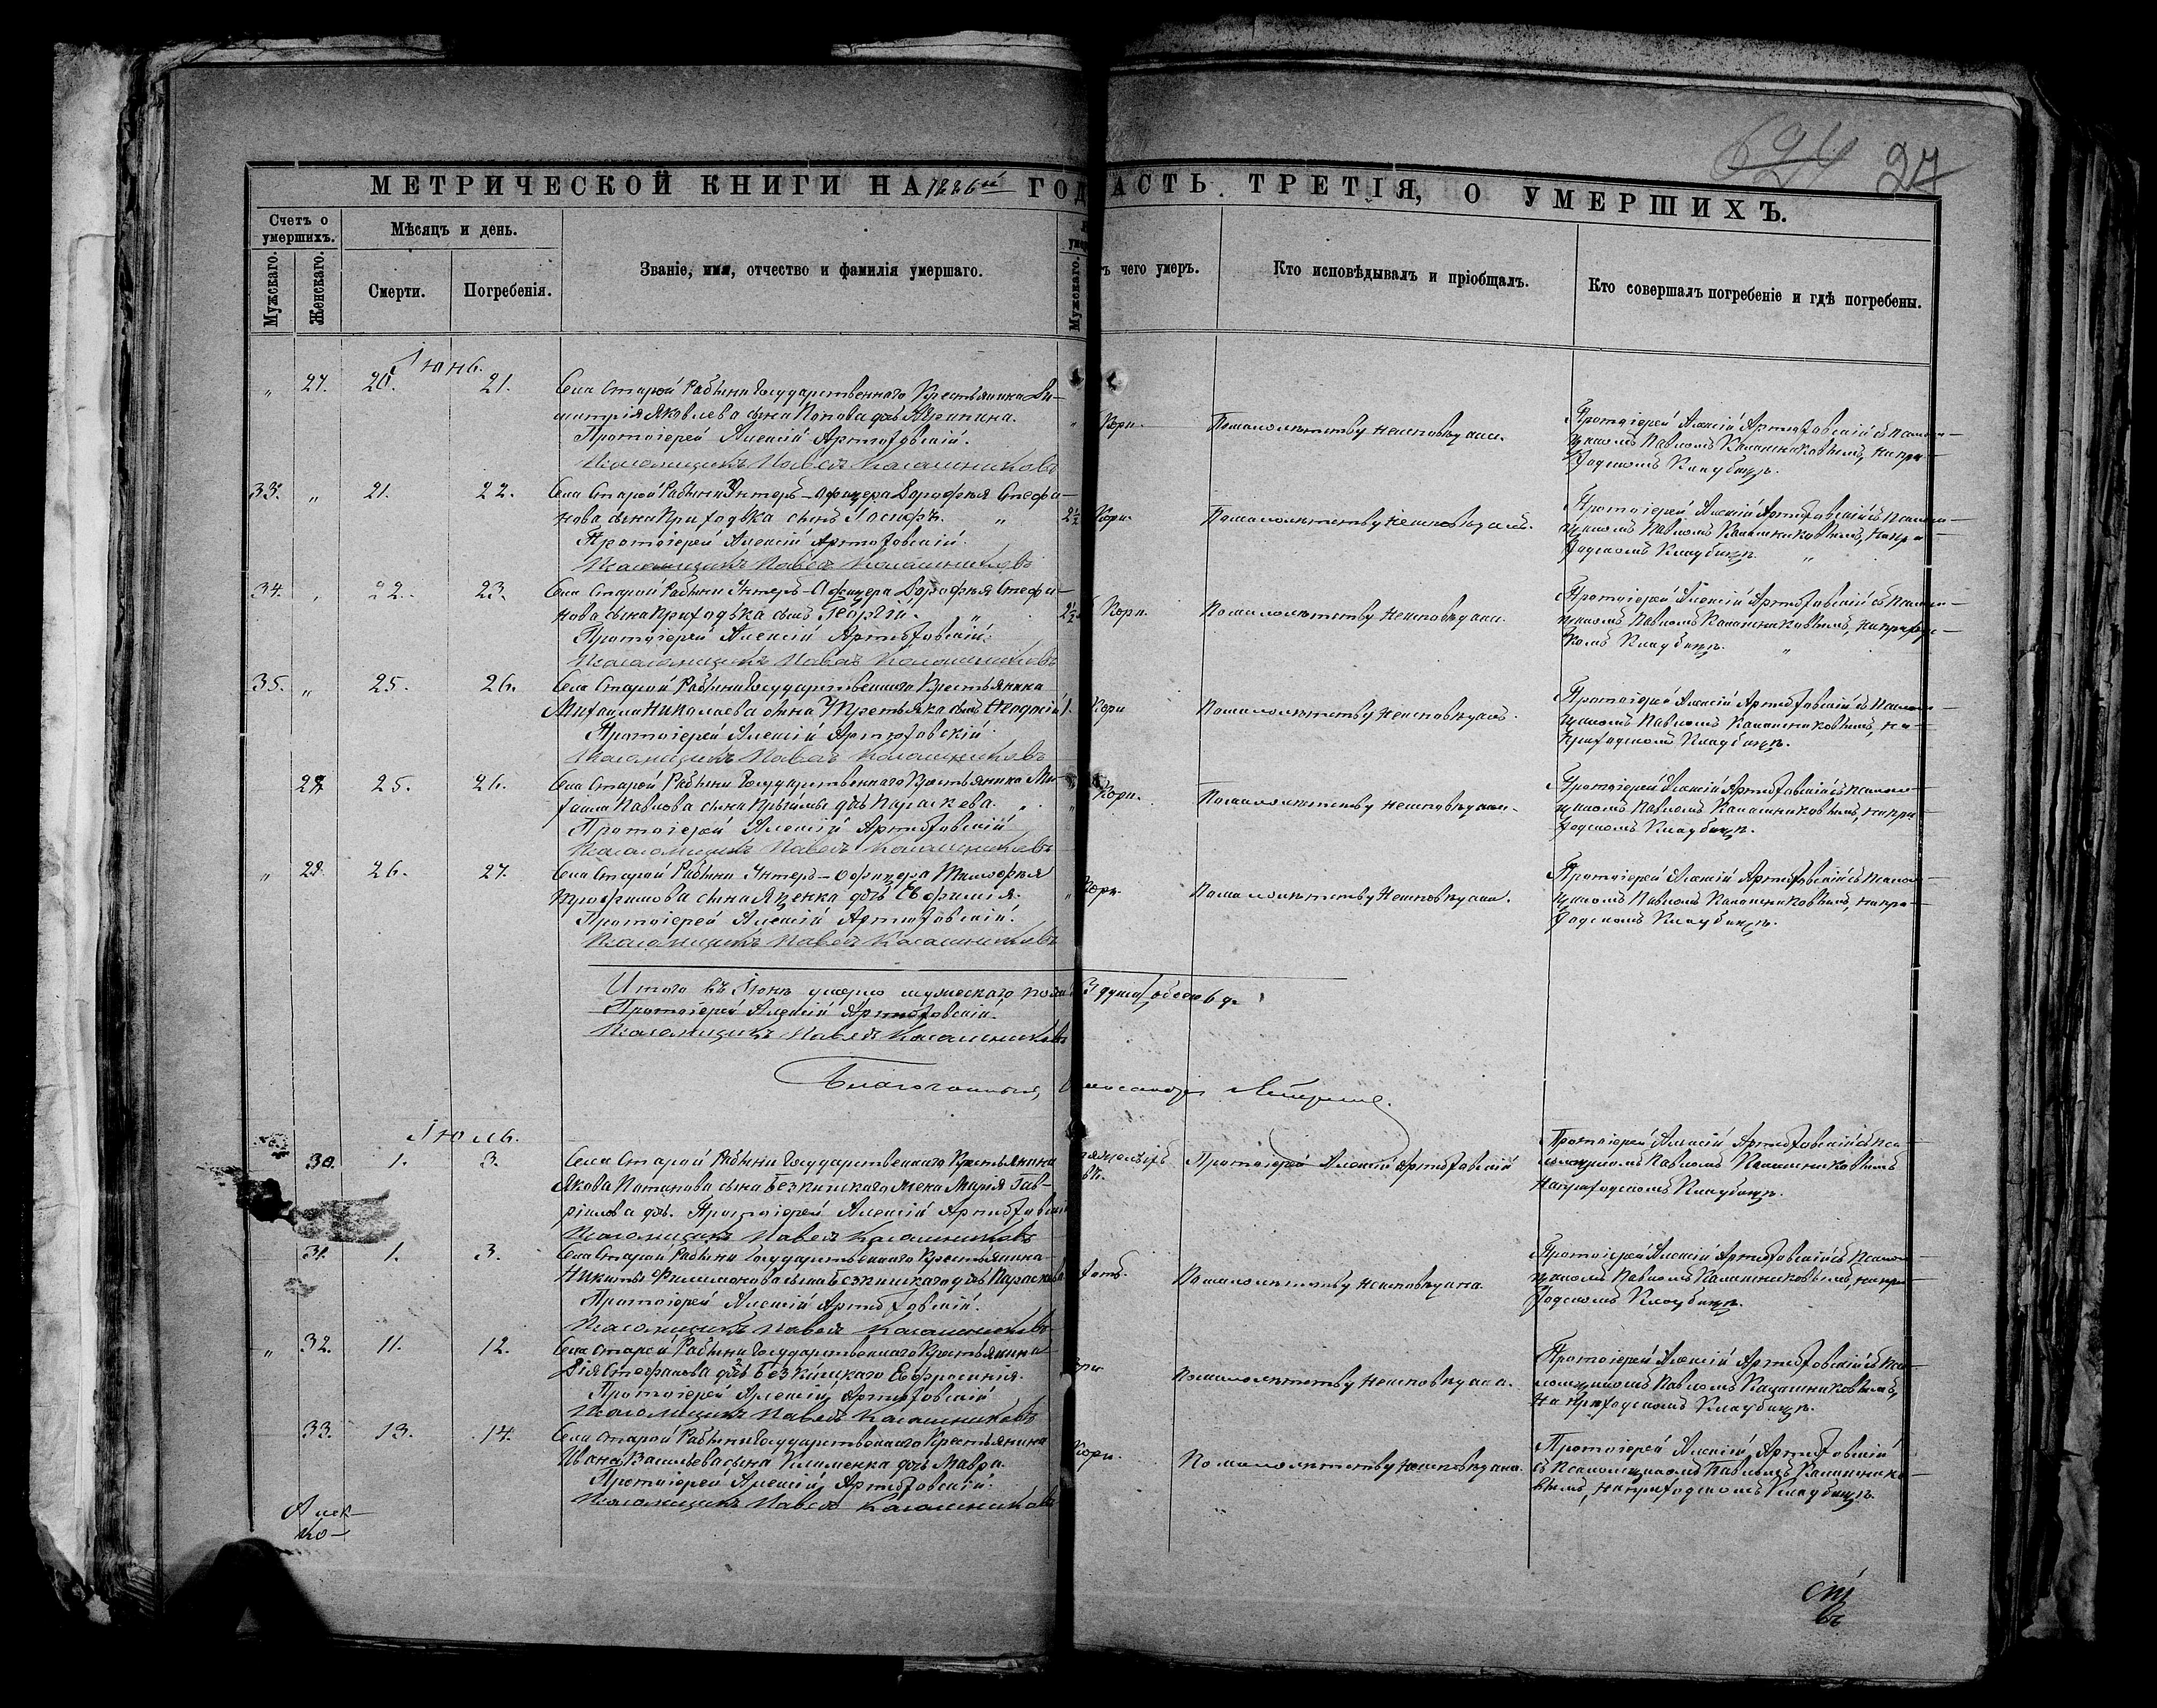 624 27
МЕТРИЧЕСКОЙ КНИГИ НА 1886й ГОД
АСТЬ ТРЕТІЯ, О УМЕРШИХЪ.
Счетъ о умершихъ.
Мужскаго.
Женскаго.
Мѣсяцъ и день.
Смерти.
Погребенія.
Званіе, имя, отчество и фамилія умершаго.
Мужскаго.
ъ чего умеръ.
Кто исповѣдывалъ и пріобщалъ.
Кто совершалъ погребеніе и гдѣ погребены.
Іюнь.
„ 27. 20. 21.
Села Старой Рябыни Государственнаго Крестьянина Ди-
митрія Яковлева сына Попова дочь
Протоіерей Алексій Артюховскій.
Псаломщикъ Павелъ Калашниковъ
Кори.
По малолѣтству неисповѣдана.
Протоіерей Алексій Артюховскій съ псалом-
щикомъ Павломъ Калашниковымъ, на при-
ходскомъ кладбищѣ.
33. „ 21. 22.
Села Старой Рябыни Унтеръ-Офицера Дорофея Стефа-
нова сына Приходька сынъ Іосифъ. „
Протоіерей Алексій Артюховскій.
Псаломщикъ Павелъ Калашниковъ
2½
Кори.
По малолѣтству неисповѣданъ.
Протоіерей Алексій Артюховскій съ псалом-
щикомъ Павломъ Калашниковымъ, на при-
ходскомъ кладбищѣ. „
34. „ 22. 23.
Села Старой Рябыни Унтеръ-Офицера Дорофея Стефа-
нова сына Приходька сынъ Георгій. „
Протоіерей Алексій Артюховскій.
Псаломщикъ Павелъ Калашниковъ
2½
Кори.
По малолѣтству неисповѣдана.
Протоіерей Алексій Артюховскій съ псалом-
щикомъ Павломъ Калашниковымъ, на приходс-
комъ кладбищѣ. „
35. „ 25. 26.
Села Старой Рябыни Государственнаго Крестьянина
Михаила Николаева сына Третьяка сынъ
Протоіерей Алексій Артюховскій.
Псаломщикъ Павелъ Калашниковъ
1.
Кори
По малолѣтству неисповѣданъ.
Протоіерей Алексій Артюховскій съ псалом-
щикомъ Павломъ Калашниковымъ, на
приходскомъ кладбищѣ.
28 25. 26.
Села Старой Рябыни Государственнаго Крестьянина Ми-
хаила Павлова сына дочь Параскева. „
Протоіерей Алексій Артюховскій
Псаломщикъ Павелъ Калашниковъ
Кори.
По малолѣтству неисповѣдана.
Протоіерей Алексій Артюховскій съ псалом-
щикомъ Павломъ Калашниковымъ, на при-
ходскомъ кладбищѣ.
„ 29. 26. 27.
Села Старой Рябыни Унтеръ-Офицера Тимофея
Трофимова сына Яценка дочь Евфимія.
Протоіерей Алексій Артюховскій.
Псаломщикъ Павелъ Калашниковъ
Кори.
По малолѣтству неисповѣдана.
Протоіерей Алексій Артюховскій съ псалом-
щикомъ Павломъ Калашниковымъ, на при-
ходскомъ кладбищѣ.
Итого въ Іюнѣ умерло мужескаго пола 3 души обоего 6 д.
Протоіерей Алексій Артюховскій.
Псаломщикъ Павелъ Калашниковъ
Благочинный,
Іюль.
30. 1. 3.
Села Старой Рябыни Государственнаго Крестьянина
Якова Потапова сына Безкишкаго жена Марія Гав-
ріилова дочь. Протоіерей Алексій Артюховскій
Псаломщикъ Павелъ Калашниковъ
Протоіерей Алексій Артюховскій
Протоіерей Алексій Артюховскій съ пса-
ломщикомъ Павломъ Калашниковымъ
на приходскомъ кладбищѣ.
31. 1. 3.
Села Старой Рябыни Государственнаго Крестьянина
Никиты Филимонова сына Безкишкаго дочь Параскева
Протоіерей Алексій Артюховскій.
Псаломщикъ Павелъ Калашниковъ
По малолѣтству неисповѣдана.
Протоіерей Алексій Артюховскій съ псалом-
щикомъ Павломъ Калашниковымъ, на при-
ходскомъ кладбищѣ.
„ 32. 11. 12.
Села Старой Рябыни Государственнаго Крестьянина
Стефанова дочь Безкишкаго Евфросинія.
Протоіерей Алексій Артюховскій
Псаломщикъ Павелъ Калашниковъ
По малолѣтству неисповѣдана.
Протоіерей Алексій Артюховскій съ пса-
ломщикомъ Павломъ Калашниковымъ,
на приходскомъ кладбищѣ.
33. 13. 14.
Села Старой Рябыни Государственнаго Крестьянина
Ивана Васильева сына Клименка дочь Мавра.
Протоіерей Алексій Артюховскій.
Псаломщикъ Павелъ Калашниковъ
Кори.
По малолѣтству неисповѣдана.
Протоіерей Алексій Артюховскій
съ псаломщикомъ Павломъ Калашнико-
вымъ, на приходскомъ кладбищѣ.